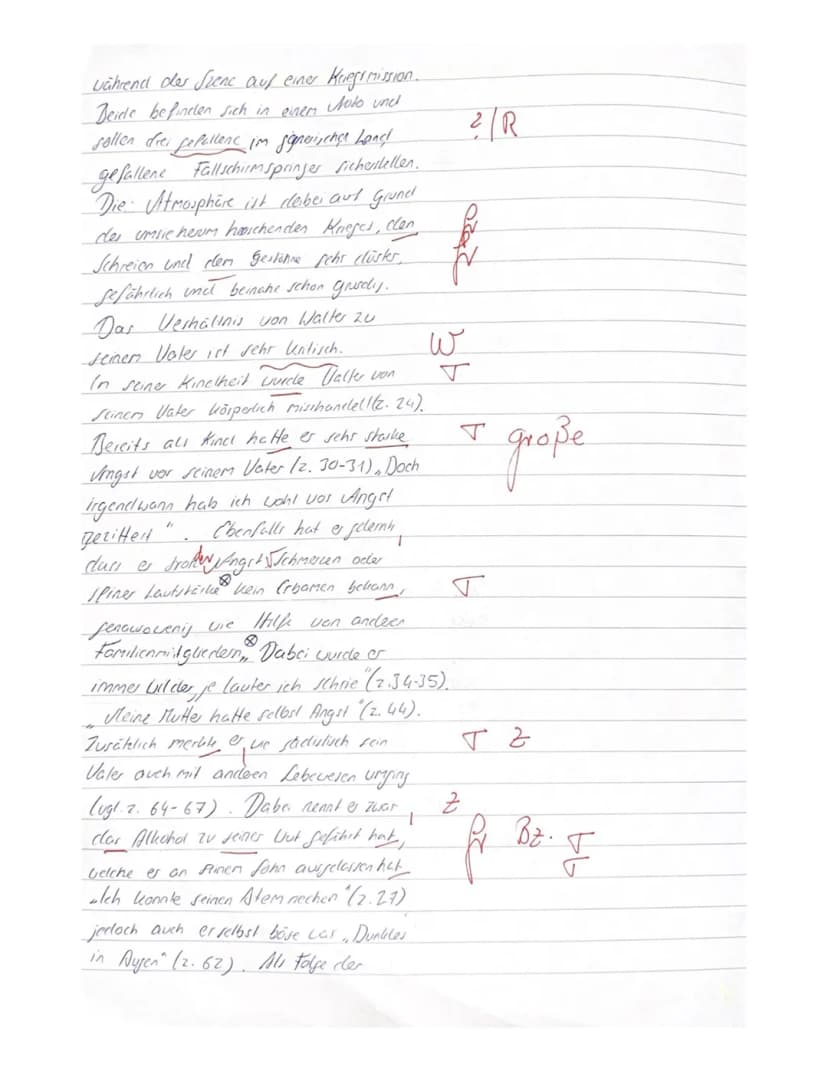 während der Szene auf einer Kriegsmission.
Beide befinden sich in einem Auto und
sollen drei gefallene im gegnerischen Land
gefallene Fallschirmspringer sicherstellen.
?/R
Die Atmosphäre ist dabei auf Grund
des umsie herum herrschenden Krieges, den
Schreien und dem Gestöhne sehr düster,
gefährlich und beinahe schon gruselig.
Gr
Gr
Das Verhältnis von Walter zu
seinem Vater ist sehr kritisch.
W
In seiner Kindheit wurde Walter von
T
seinem Vater körperlich misshandelt (Z. 24).
Bereits als Kind hatte er sehr starke
T große
Angst vor seinem Vater (Z. 30-31) „Doch
irgendwann hab ich wohl vor Angst
gezittert“. Ebenfalls hat er gelernt,
dass er trotz der Angst, Schmerzen oder
seiner Lautstärke⊗ kein Erbarmen bekann,
T
genausowenig wie Hilfe von anderen
Familienmitgliedern⊗ „Dabei wurde er
immer wilder, je lauter ich schrie“ (Z.34-35).
„Meine Mutter hatte selbst Angst“ (Z. 44).
Zusätzlich merkte er, wie sadistisch sein
T Z
Vater auch mit anderen Lebewesen umging
(vgl. Z. 64-67). Dabei nennt er zwar,
Z
das Alkohol zu seiner Wut geführt hat,
Gr Bz. T
welche er an seinem Sohn ausgelassen hat
T
„Ich konnte seinen Atem riechen“ (Z.27)
jedoch auch er selbst böse war „Dunkles
in Augen“ (Z. 62). Als Folge der